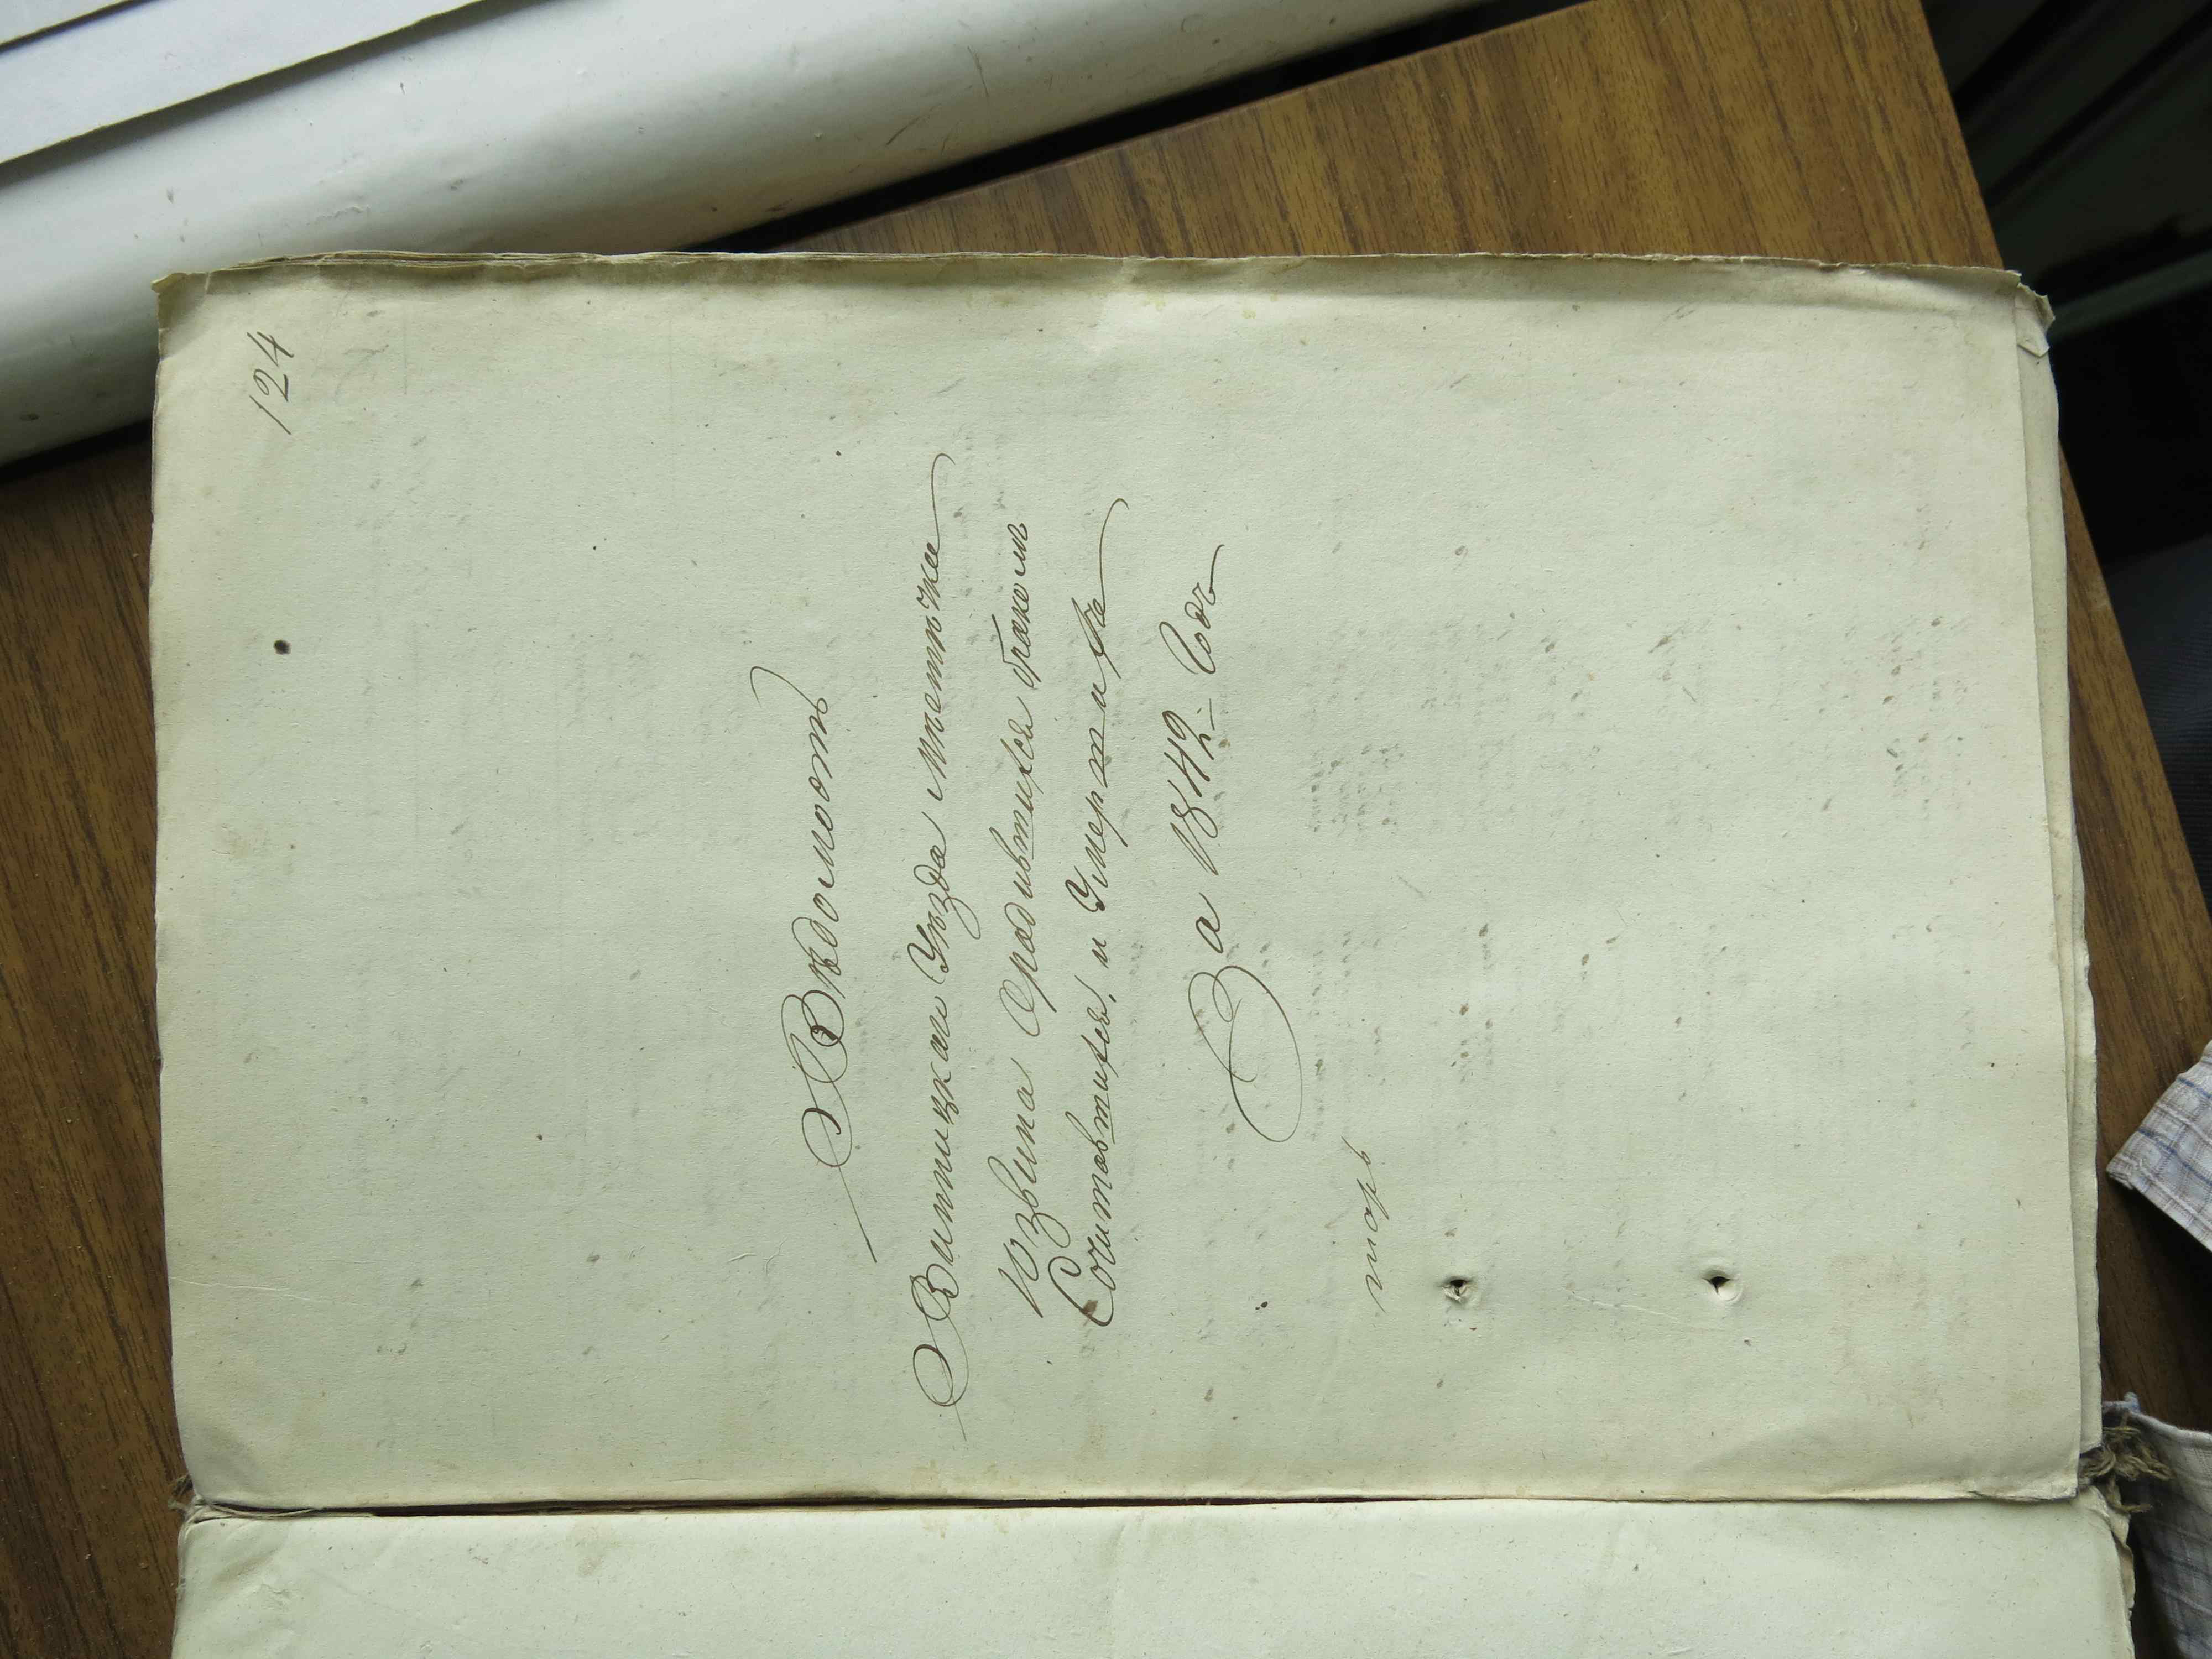 124
Вѣдомость
Винницкаго Уѣзда Мѣстечка
Юзвина Ородившихся бракомъ
Сочитавшихся, и Умершихъ
За 1842 Годъ